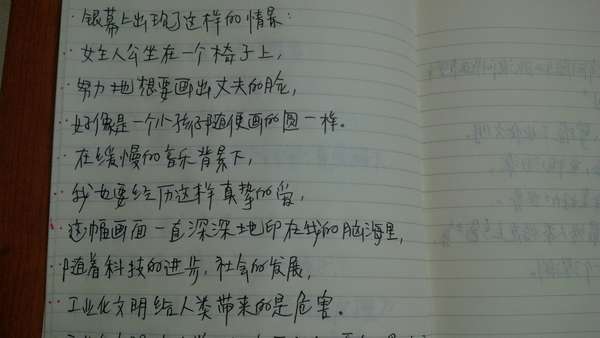 银幕上出现了这样的情景:
女主人公坐在一个椅子上,
努力地想要画出丈夫的脸,
好像是一个小孩仔随便画的圆一样。
在缓慢的音乐背景下,
我也要经历这样真挚的爱,
这幅画面一直深深地印在我的脑海里,
随着科技的进步,社会的发展,
工业化文明给人类带来的是危害。